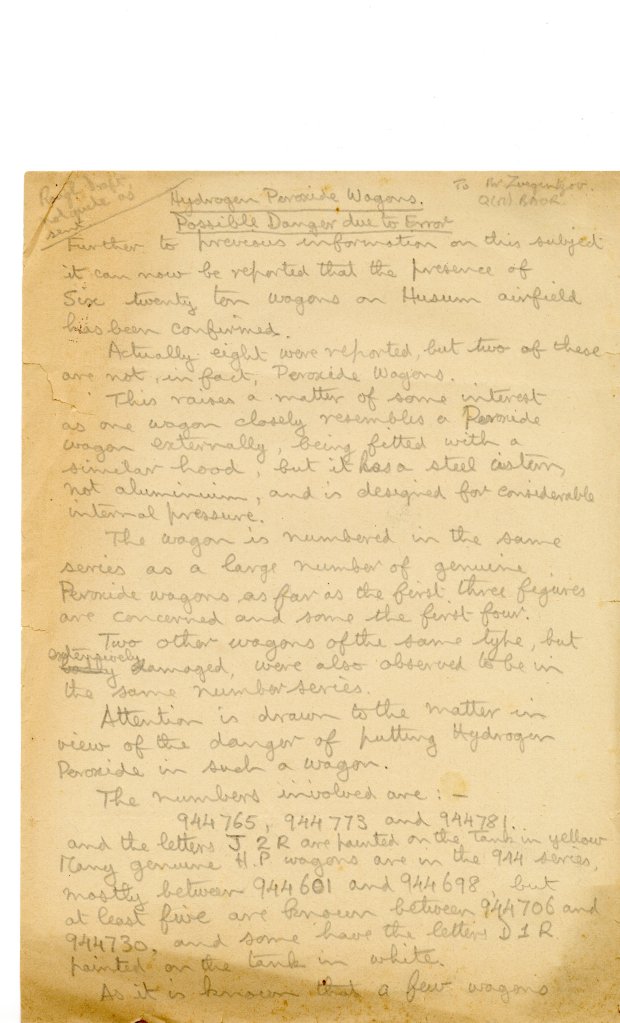 Rough draft
not quite as
sent
To Mr Zvegintzov.
Q(M) BAOR
Hydrogen Peroxide Wagons.
Possible Danger due to Error
Further to previous information on this subject
it can now be reported that the presence of
Six twenty ton wagons on Husum airfield
has been confirmed.
Actually eight were reported, but two of these
are not, in fact, Peroxide Wagons.
This raises a matter of some interest
as one wagon closely resembles a Peroxide
wagon externally, being fitted with a
similar hood, but it has a steel cistern,
not aluminium, and is designed for considerable
internal pressure.
The wagon is numbered in the same
series as a large number of genuine
Peroxide wagons as far as the first three figures
are concerned and some the first four.
Two other wagons of the same type, but
extensively
badly damaged, were also observed to be in
the same number series.
Attention is drawn to the matter in
view of the danger of putting Hydrogen
Peroxide in such a wagon.
The numbers involved are : —
944765, 944773 and 944781.
and the letters J 2 R are painted on the Tank in yellow
Many genuine H.P wagons are in the 944 series,
mostly between 944601 and 944698, but
at least five are known between 944706 and
944730, and some have the letters D 1 R
painted on the tank in white.
As it is known that a few wagons